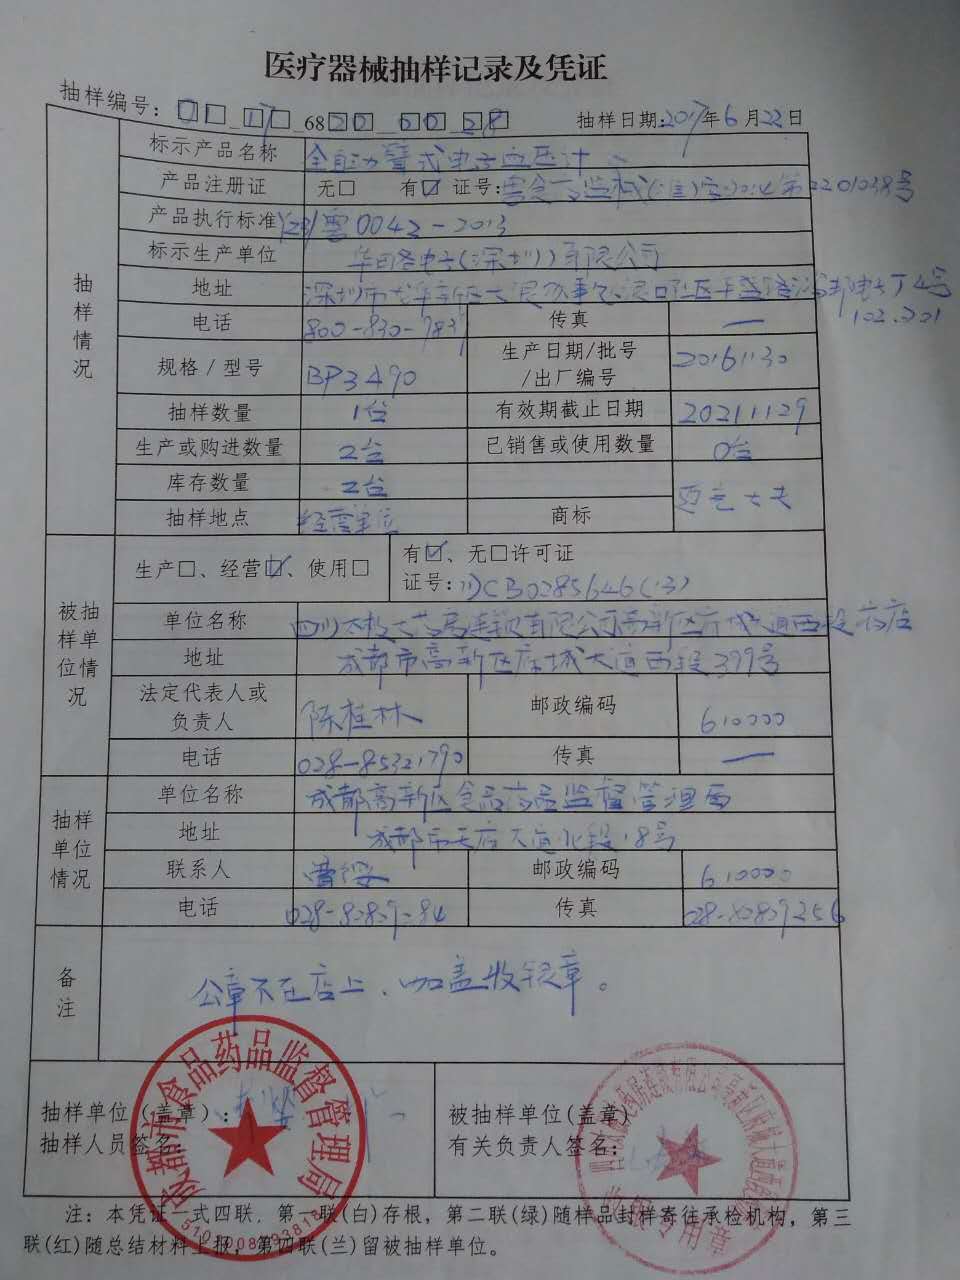 医疗器械抽样记录及凭证
抽样编号: 01 17 6820 00 28 抽样日期:2017年6月22日
抽样情况
标示产品名称 全自动臂式电子血压计
产品注册证 无□ 有☑ 证号:粤食药监械(准)字2014第2201038号
产品执行标准 YZB/粤0042-2013
标示生产单位 华略电子(深圳)有限公司
地址 深圳市龙华新区大浪办事处浪口社区 4号
102.201
电话 800-830-7839 传真 —
规格/型号 BP3A90 生产日期/批号/出厂编号 20161130
抽样数量 1台 有效期截止日期 20211129
生产或购进数量 2台 已销售或使用数量 0台
库存数量 2台
抽样地点 经营单位 商标 迈克大夫
被抽样单位情况
生产□、经营☑、使用□ 有☑、无□许可证
证号:川CB0285646(3)
单位名称 四川太极大药房连锁有限公司高新区府城大道西段药店
地址 成都市高新区府城大道西段399号
法定代表人或负责人 陈桂林 邮政编码 610000
电话 028-85321790 传真 —
抽样单位情况
单位名称 成都高新区食品药品监督管理局
地址 成都市天府大道北段18号
联系人 邮政编码 610000
电话 传真
备注
公章不在店上、加盖收银章。
抽样单位(盖章):
抽样人员签名:
被抽样单位(盖章)
有关负责人签名:
成都市食品药品监督管理局
收银专用章
注:本凭证一式四联,第一联(白)存根,第二联(绿)随样品封样寄往承检机构,第三
联(红)随总结材料上报,第四联(兰)留被抽样单位。